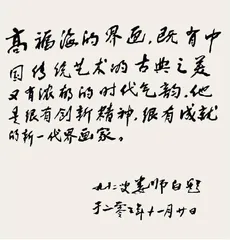 高福海的界画，既有中
国传统艺术的古典之美
又有浓郁的时代气韵，他
是很有创新精神，很有成就
的新一代界画家。
九十二叟娄师白题
于二零零九年十一月廿日